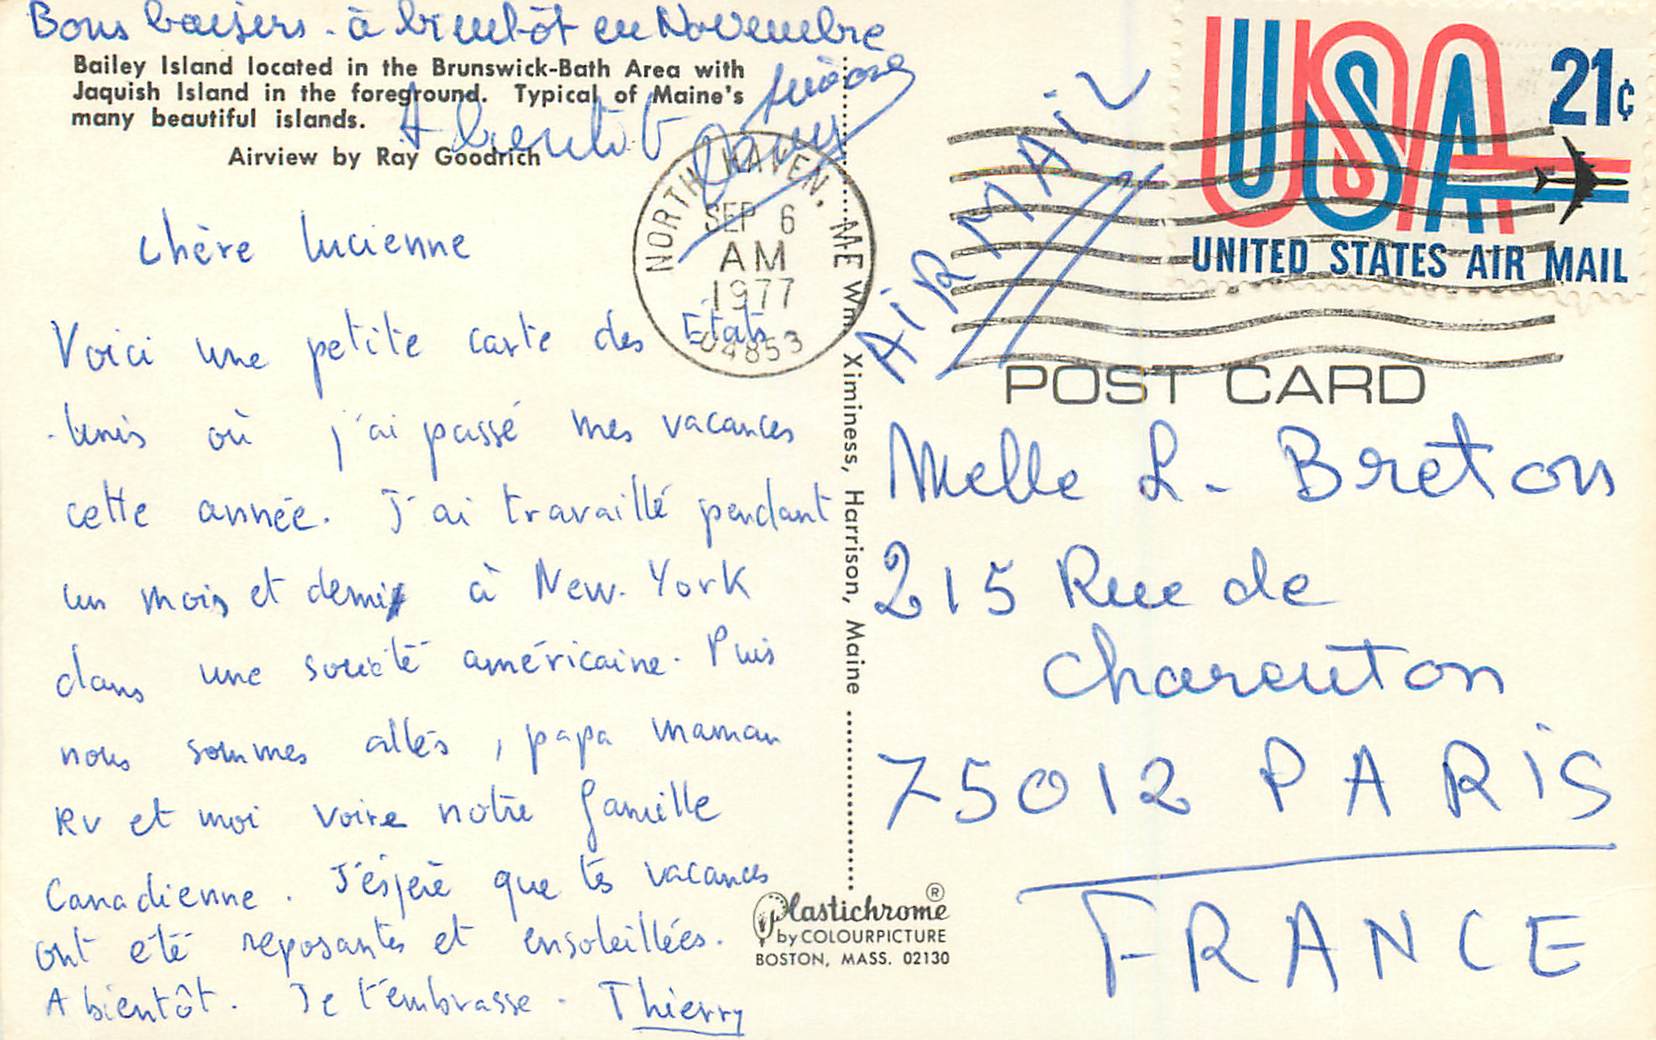 Bons baisers - à bientôt en Novembre
Bailey Island located in the Brunswick-Bath Area with
Jaquish Island in the foreground. Typical of Maine's
many beautiful islands.
Airview by Ray Goodrich
A bientôt
Chère Lucienne
Voici une petite carte des Etats
-Unis où j'ai passé mes vacances
cette année. J'ai travaillé pendant
un mois et demi à New-York
dans une société américaine. Puis
nous sommes allés, papa maman
RV et moi voire notre famille
Canadienne. J'éspère que tes vacances
ont été reposantes et ensoleillées.
A bientôt. Je t'embrasse - Thierry
NORTH HAVEN, ME
SEP 6
AM
1977
04853
Wm. Ximiness, Harrison, Maine
Plastichrome ®
by COLOURPICTURE
BOSTON, MASS. 02130
USA 21¢
UNITED STATES AIR MAIL
AIR MAIL
POST CARD
Melle L. Breton
215 Rue de
Charenton
75012 PARIS
FRANCE